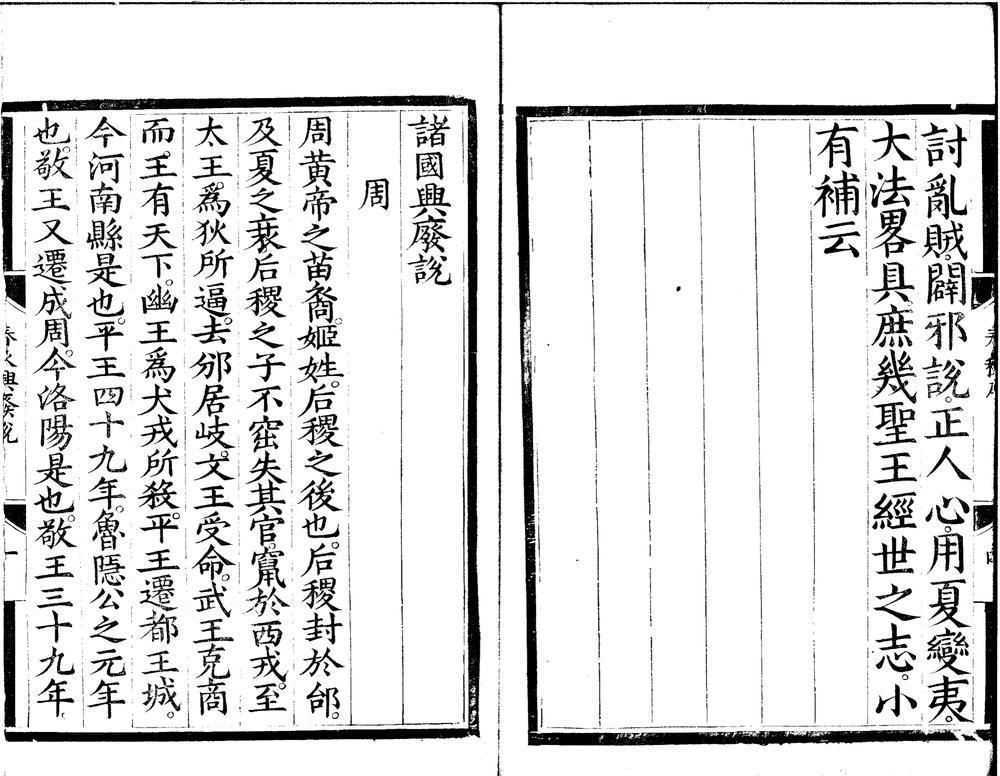 討亂賊。闢邪說。正人心。用夏變夷。
大法畧具。庶幾聖王經世之志。小
有補云
諸國興廢說
周
周黃帝之苗裔。姬姓。后稷之後也。后稷封於邰。
及夏之衰。后稷之子不窋失其官。竄於西戎。至
太王。爲狄所逼。去邠居岐。文王受命。武王克商
而。王有天下。幽王爲犬戎所殺。平王遷都王城。
今河南縣是也。平王四十九年。魯隱公之元年
也。敬王又遷成周。今洛陽是也。敬王三十九年。
春火興廢說
一